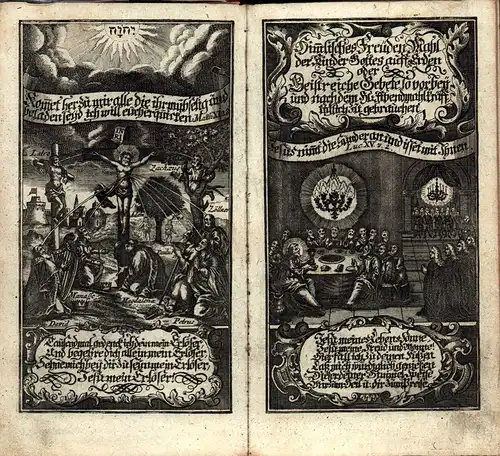 יהוה
Komet her zu mir alle die ihr mühselig und
beladen seyd ich will euch erquicken Matt. XI.
Latro
Zachæus
Zöllner
Manasse
Magdalena
David
Petrus
Tausendmal gedenck ich dein mein Erlöser
Und begehre dich allein mein Erlöser
Sehne mich bey dir zu seyn mein Erlöser
Jesu mein Erlöser
Himlisches Freuden Mahl
der Kinder Gottes auf Erden
oder
Geistreiche Gebete so vor bey
und nach dem H. Abendmahl
zu gebrauchen
Jesus nimt die Sünder an und isset mit Ihnen
Luc. XV v. 2.
Jesu meines Lebens Sonne
Jesu meine Freud und Wonne
Hier fall ich zu deinen Füssen
Laß mich würdiglich geniesen
Dieser deiner Himmels Speise
Mir zum Heil u. dir zum Preise